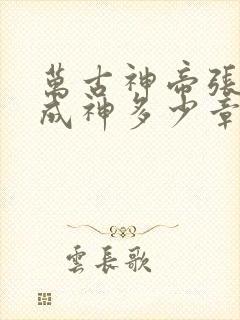 萬古神帝張
成神多少章
雲長歌